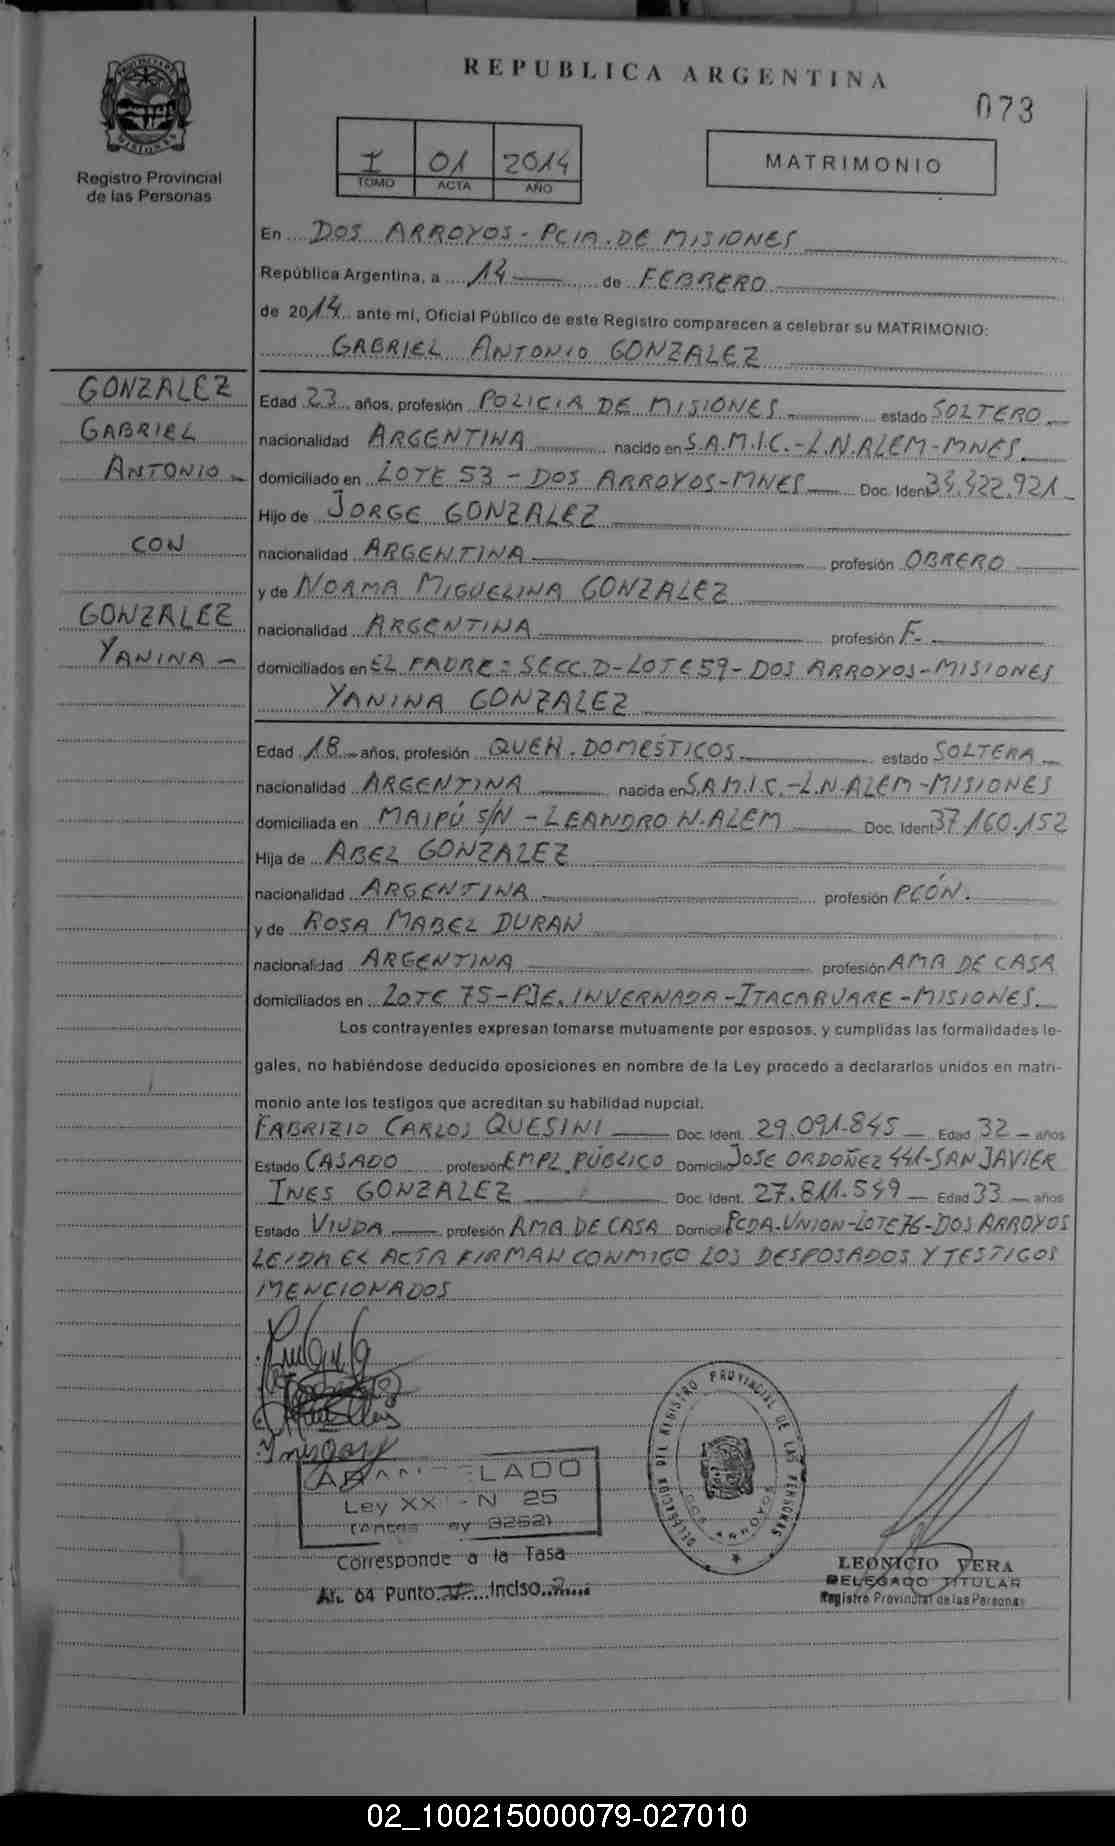 REPUBLICA ARGENTINA
073
PROVINCIA DE MISIONES
Registro Provincial
de las Personas
I 01 2014
TOMO ACTA AÑO
MATRIMONIO
En DOS ARROYOS - PCIA. DE MISIONES
República Argentina, a 14 de FEBRERO
de 2014 ante mi, Oficial Público de este Registro comparecen a celebrar su MATRIMONIO:
GABRIEL ANTONIO GONZALEZ
GONZALEZ
GABRIEL
ANTONIO -
CON
GONZALEZ
YANINA -
Edad 23 años, profesión POLICIA DE MISIONES estado SOLTERO
nacionalidad ARGENTINA nacido en S.A.M.I.C. - L.N.ALEM - MNES.
domiciliado en LOTE 53 - DOS ARROYOS - MNES Doc. Ident. .922.921
Hijo de JORGE GONZALEZ
nacionalidad ARGENTINA profesión OBRERO
y de NORMA MIGUELINA GONZALEZ
nacionalidad ARGENTINA profesión F.
domiciliados en EL PADRE: SECC. D - LOTE 59 - DOS ARROYOS - MISIONES
YANINA GONZALEZ
Edad 18 años, profesión QUEH. DOMESTICOS estado SOLTERA
nacionalidad ARGENTINA nacida en S.A.M.I.C. - L.N.ALEM - MISIONES
domiciliada en MAIPÚ S/N - LEANDRO N. ALEM Doc. Ident 37.160.152
Hija de ABEL GONZALEZ
nacionalidad ARGENTINA profesión PEÓN.
y de ROSA MABEL DURAN
nacionalidad ARGENTINA profesión AMA DE CASA
domiciliados en LOTE 75 - PJE. INVERNADA - ITACARUARE - MISIONES.
Los contrayentes expresan tomarse mutuamente por esposos, y cumplidas las formalidades le-
gales, no habiéndose deducido oposiciones en nombre de la Ley procedo a declararlos unidos en matri-
monio ante los testigos que acreditan su habilidad nupcial.
FABRIZIO CARLOS QUESINI Doc. Ident. 29.091.845 Edad 32 años
Estado CASADO profesión EMPL. PÚBLICO Domicilio JOSE ORDOÑEZ 441 - SAN JAVIER
INES GONZALEZ Doc. Ident. 27.811.549 Edad 33 años
Estado VIUDA profesión AMA DE CASA Domicilio PCDA. UNION - LOTE 76 - DOS ARROYOS
LEIDA EL ACTA FIRMAN CONMIGO LOS DESPOSADOS Y TESTIGOS
MENCIONADOS
ARANCELADO
Ley XXI - N 25
Corresponde a la Tasa
Art. 64 Punto Inciso
DELEGACION DEL REGISTRO PROVINCIAL DE LAS PERSONAS
DOS ARROYOS
LEONICIO VERA
DELEGADO TITULAR
Registro Provincial de las Personas
02_100215000079-027010